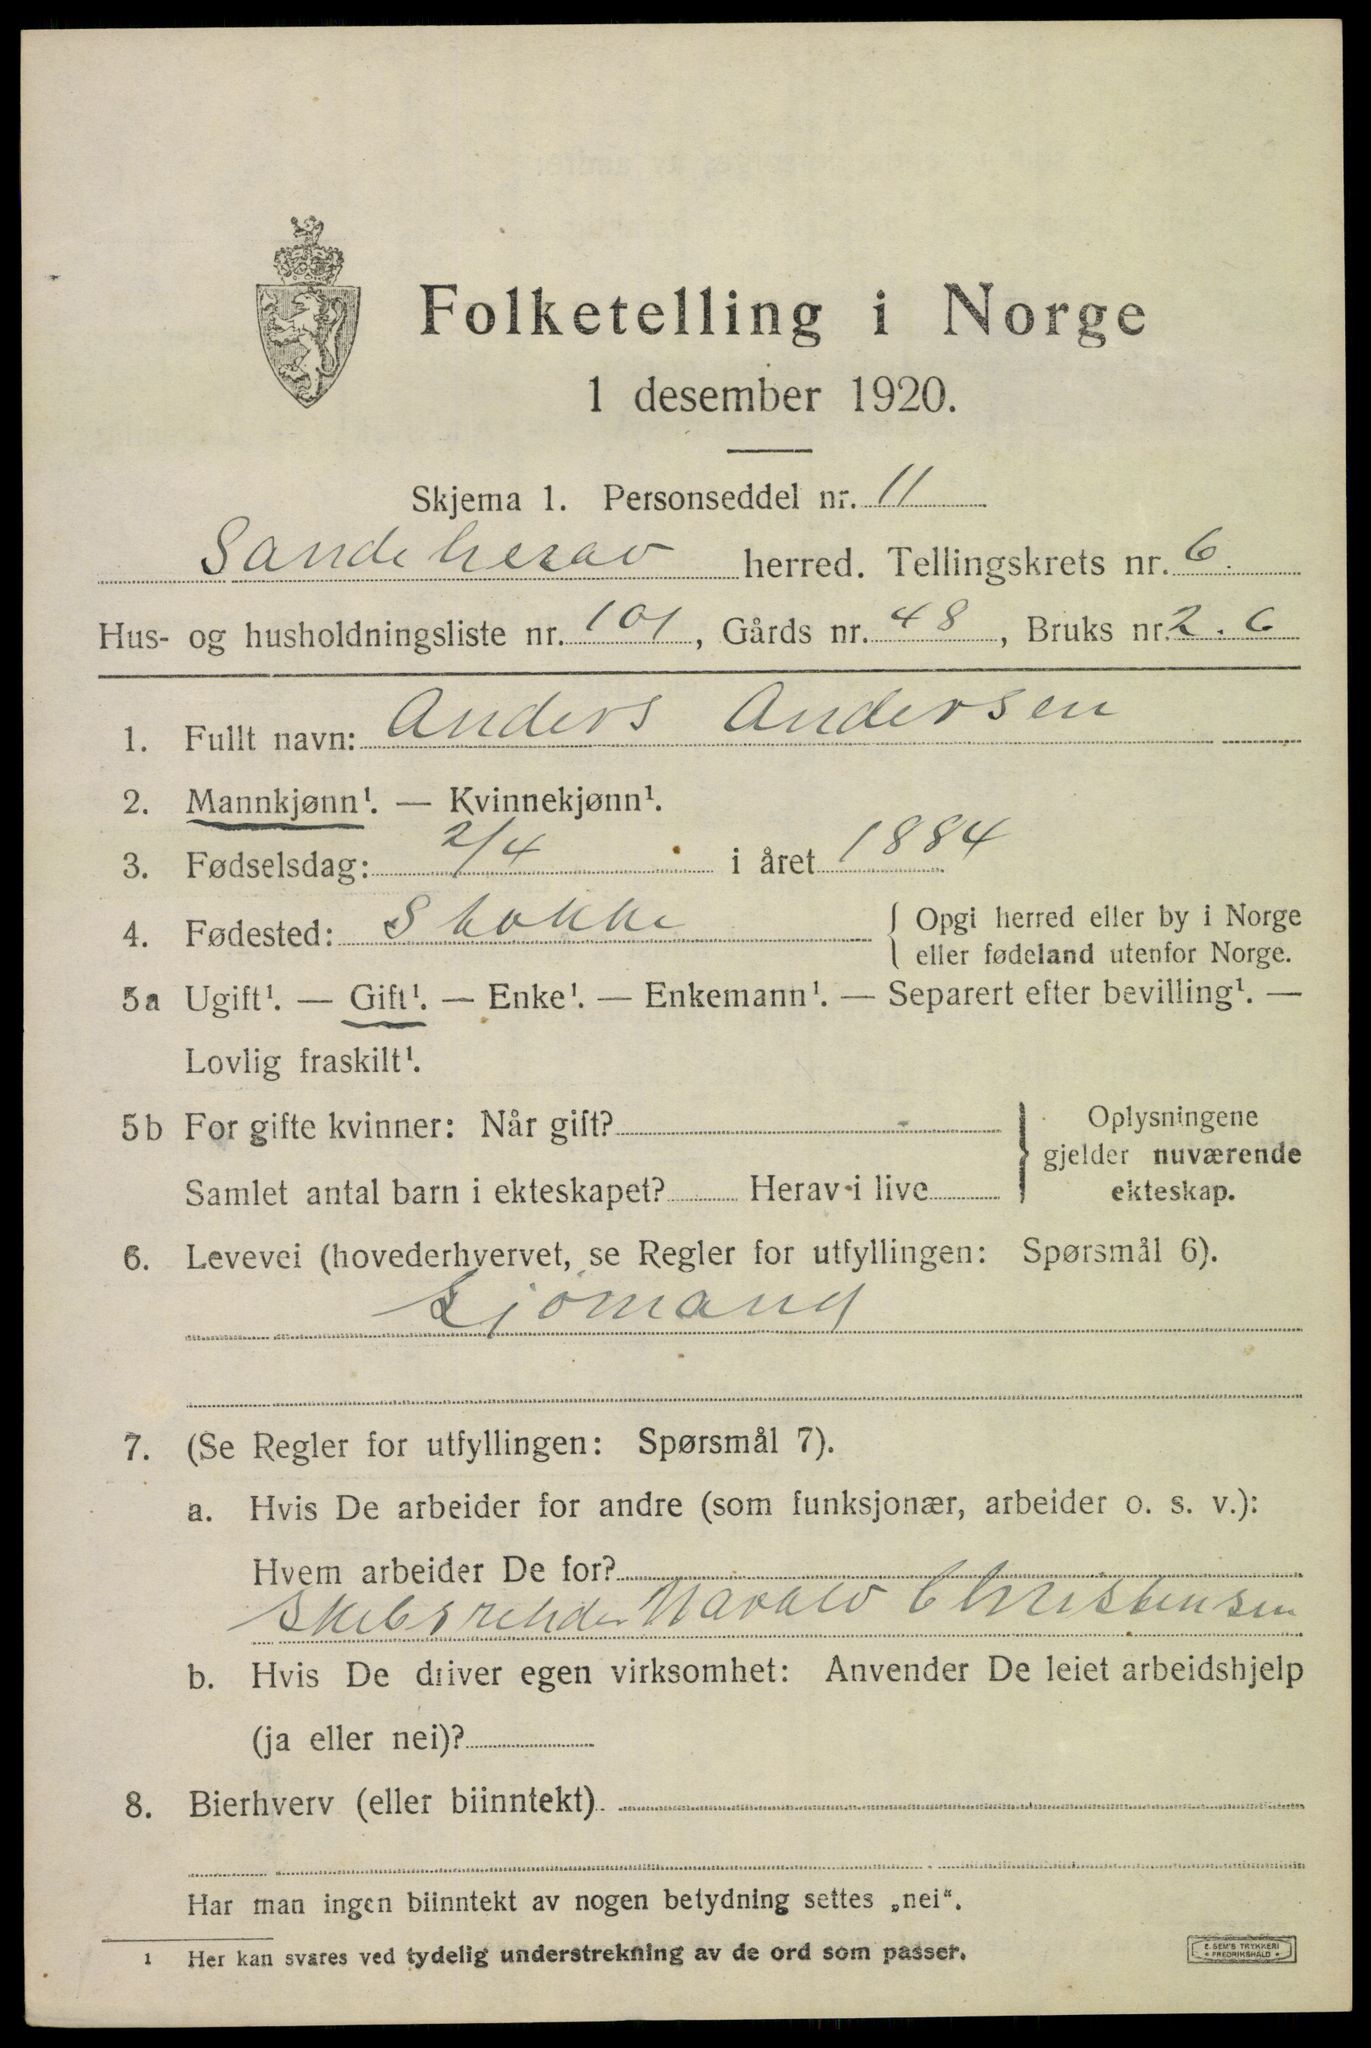 Folketelling i Norge
1 desember 1920.
Skjema 1. Personseddel nr. 11
Sandeherav herred. Tellingskrets nr. 6.
Hus- og husholdningsliste nr. 101, Gårds nr. 48, Bruks nr. 2.6
1. Fullt navn: Anders Andersen
2. Mannkjønn¹. — Kvinnekjønn¹.
3. Fødselsdag: 2/4 i året 1884
4. Fødested: Stokke { Opgi herred eller by i Norge
eller fødeland utenfor Norge.
5a Ugift¹. — Gift¹. — Enke¹. — Enkemann¹. — Separert efter bevilling¹. —
Lovlig fraskilt¹.
5b For gifte kvinner: Når gift?
Samlet antal barn i ekteskapet? Herav i live
} Oplysningene
gjelder nuværende
ekteskap.
6. Levevei (hovederhvervet, se Regler for utfyllingen: Spørsmål 6).
Sjömand
7. (Se Regler for utfyllingen: Spørsmål 7).
a. Hvis De arbeider for andre (som funksjonær, arbeider o. s. v.):
Hvem arbeider De for?
Skibsrehder Harald Christensen
b. Hvis De driver egen virksomhet: Anvender De leiet arbeidshjelp
(ja eller nei)?
8. Bierhverv (eller biinntekt)
Har man ingen biinntekt av nogen betydning settes „nei“.
1 Her kan svares ved tydelig understrekning av de ord som passer.
E. SEM'S TRYKKERI
* FREDRIKSHALD *